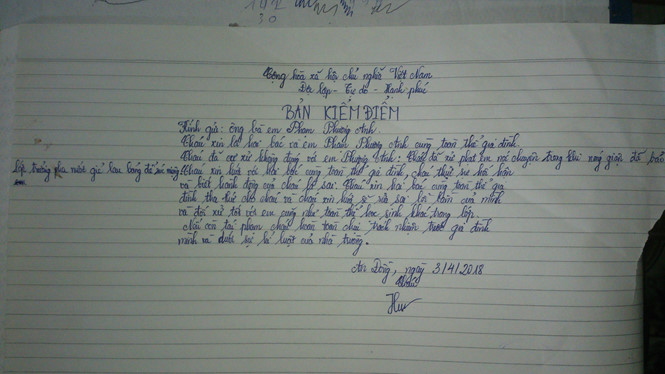 Cộng hòa xã hội chủ nghĩa Việt Nam
Độc lập - Tự do - Hạnh phúc
BẢN KIỂM ĐIỂM
Kính gửi: ông bà em Phạm Phương Anh.
Cháu xin lỗi hai bác và em Phạm Phương Anh cùng toàn thể gia đình.
Cháu đã cư xử không đúng với em Phương Anh: Cháu đã xử phạt em nói chuyện trong khi nóng giận, đã bắt
lớp trưởng pha nước giẻ lau bảng để súc miệng. Cháu xin lỗi với hai bác cùng toàn thể gia đình, cháu thực sự hối hận
và biết hành động của cháu là sai. Cháu xin hai bác cùng toàn thể gia
đình tha thứ cho cháu và cháu xin hứa sẽ sửa sai lỗi lầm của mình
và đối xử tốt với em cũng như toàn thể học sinh khác trong lớp.
Nếu còn tái phạm cháu hoàn toàn chịu trách nhiệm trước gia đình
mình và dưới sự kỉ luật của nhà trường.
An Đồng, ngày 3/4/2018
Cháu